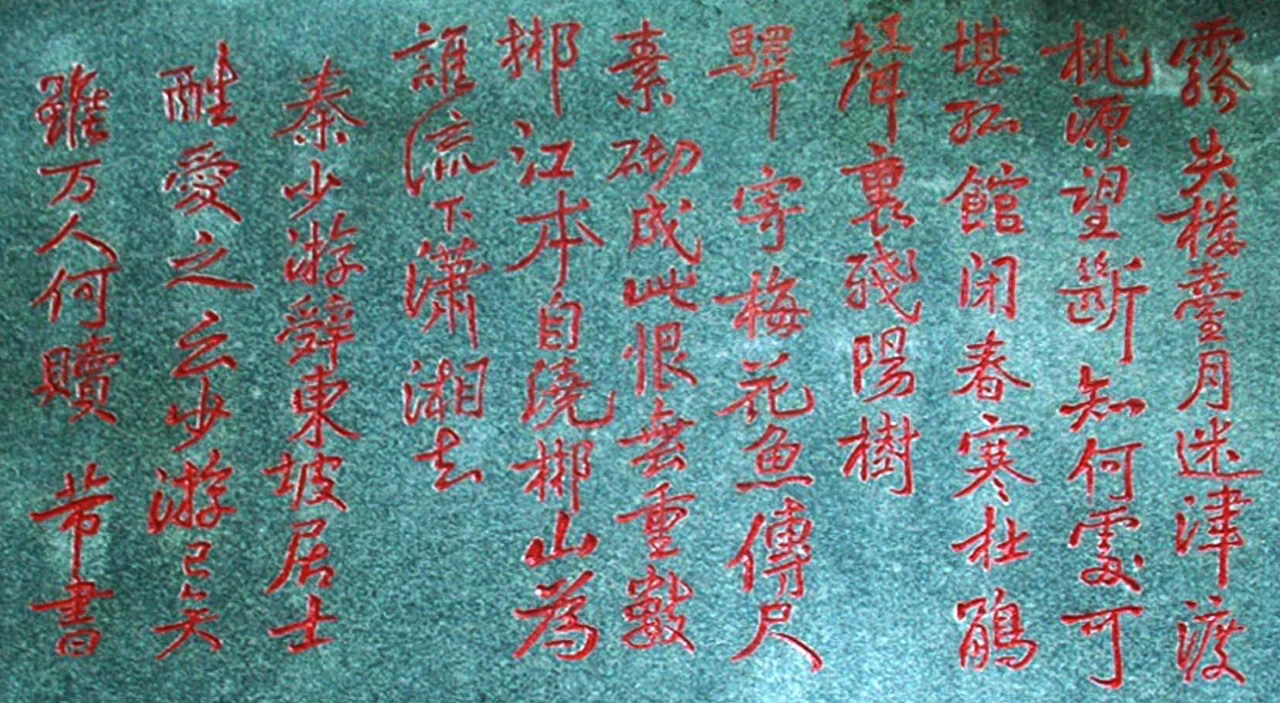 霧失樓臺月迷津渡
桃源望斷知何處可
堪孤館閉春寒杜鵑
聲裏殘陽樹
驛寄梅花魚傳尺
素砌成此恨無重數
郴江本自澆郴山為
誰流下瀟湘去
秦少游辭東坡居士
酷愛之云少游已矣
雖万人何贖 芾書